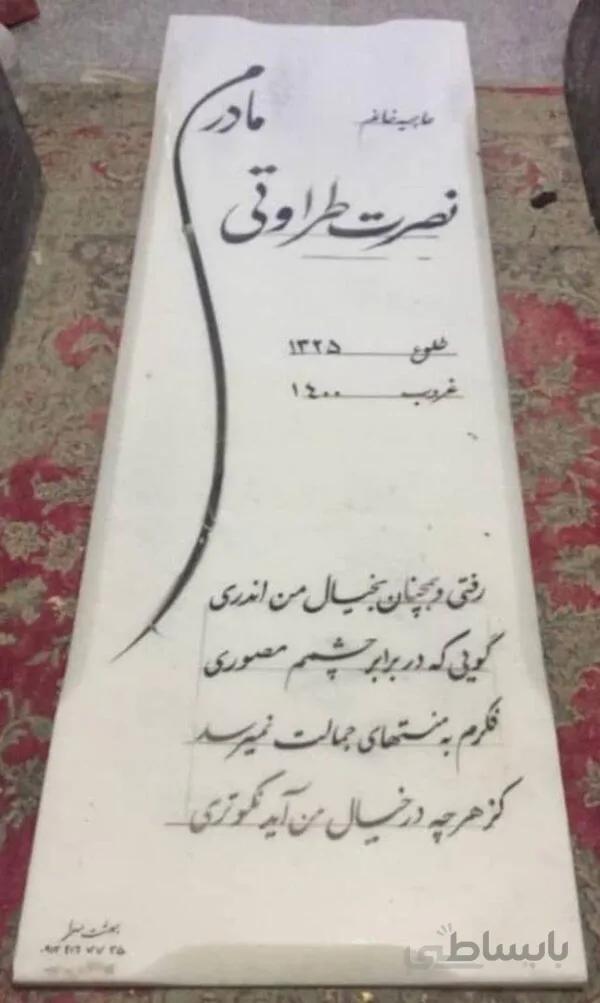 مادرم
حاجیه خانم
نصرت طراوتی
طلوع ۱۳۲۵
غروب ۱۴۰۰
رفتی و همچنان بخیال من اندری
گویی که در برابر چشمم مصوری
فکرم به منتهای جمالت نمیرسد
کز هرچه در خیال من آید نکوتری
باپساطی